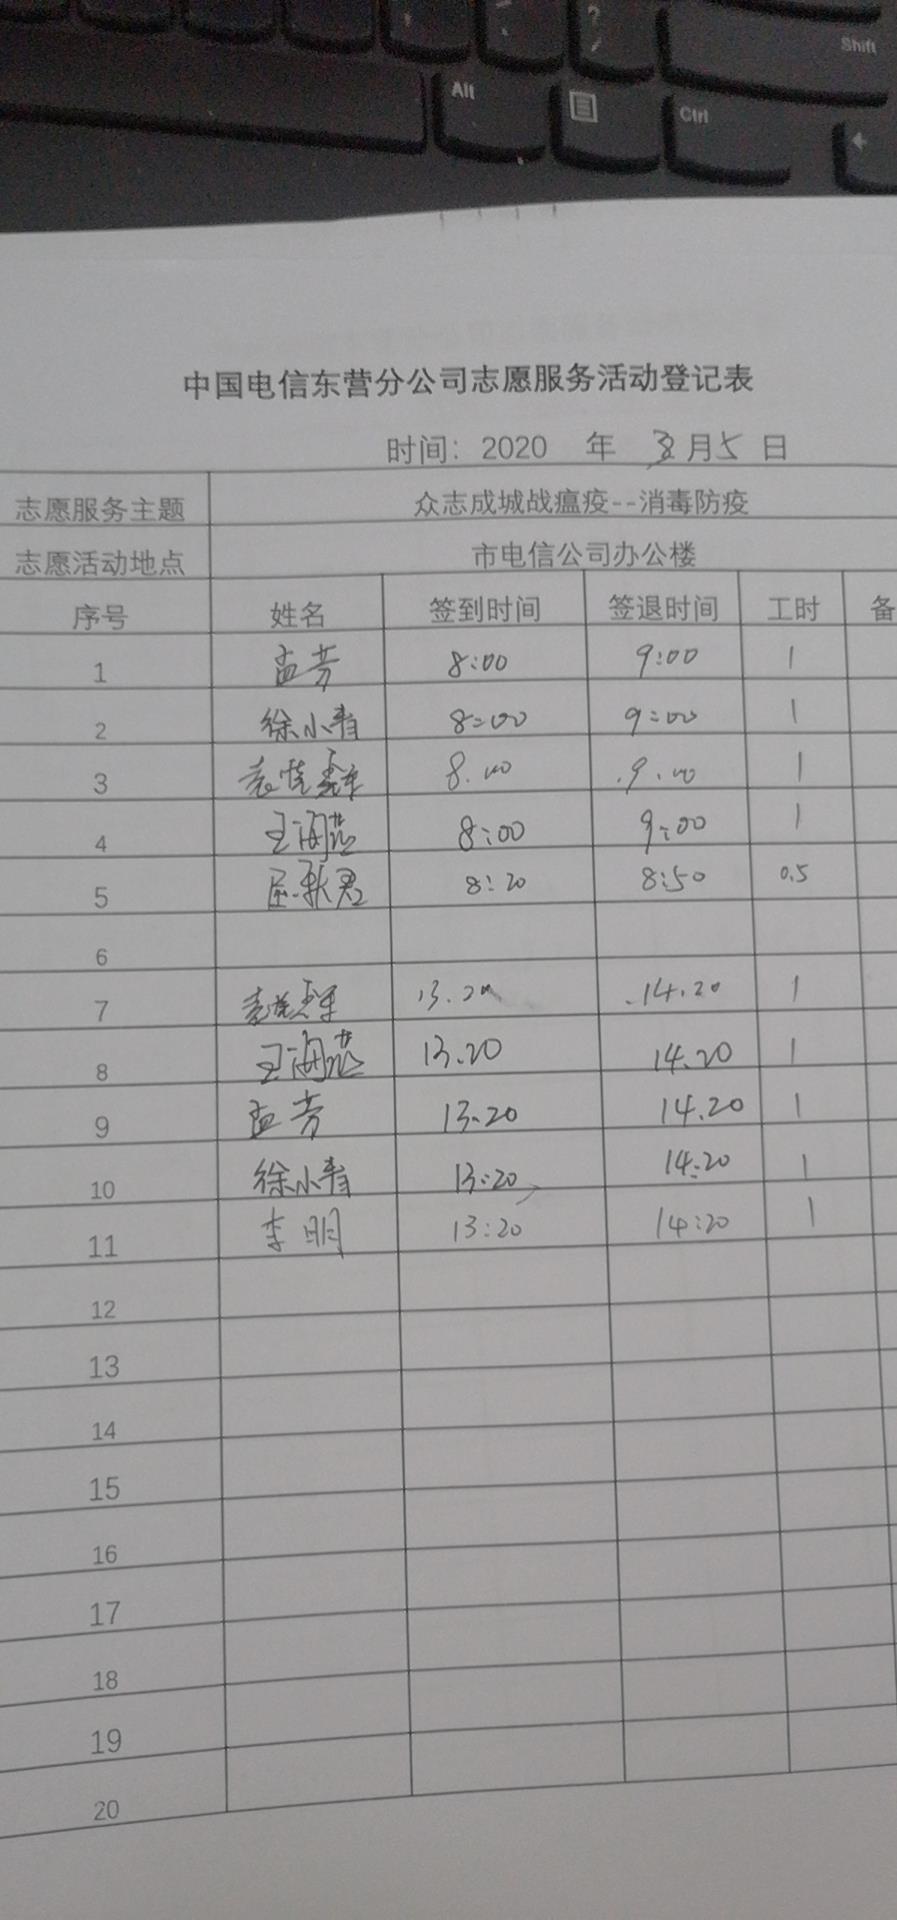 Shift
Alt
Ctrl
中国电信东营分公司志愿服务活动登记表
时间：2020 年 3月5日
志愿服务主题 众志成城战瘟疫--消毒防疫
志愿活动地点 市电信公司办公楼
序号 姓名 签到时间 签退时间 工时 备
1 孟芳 8:00 9:00 1
2 徐小青 8:00 9:00 1
3 8.00 9.00 1
4 王海燕 8:00 9:00 1
5 8:20 8:50 0.5
6
7 13.20 14.20 1
8 王海燕 13.20 14.20 1
9 孟芳 13.20 14.20 1
10 徐小青 13:20 14:20 1
11 李明 13:20 14:20 1
12
13
14
15
16
17
18
19
20